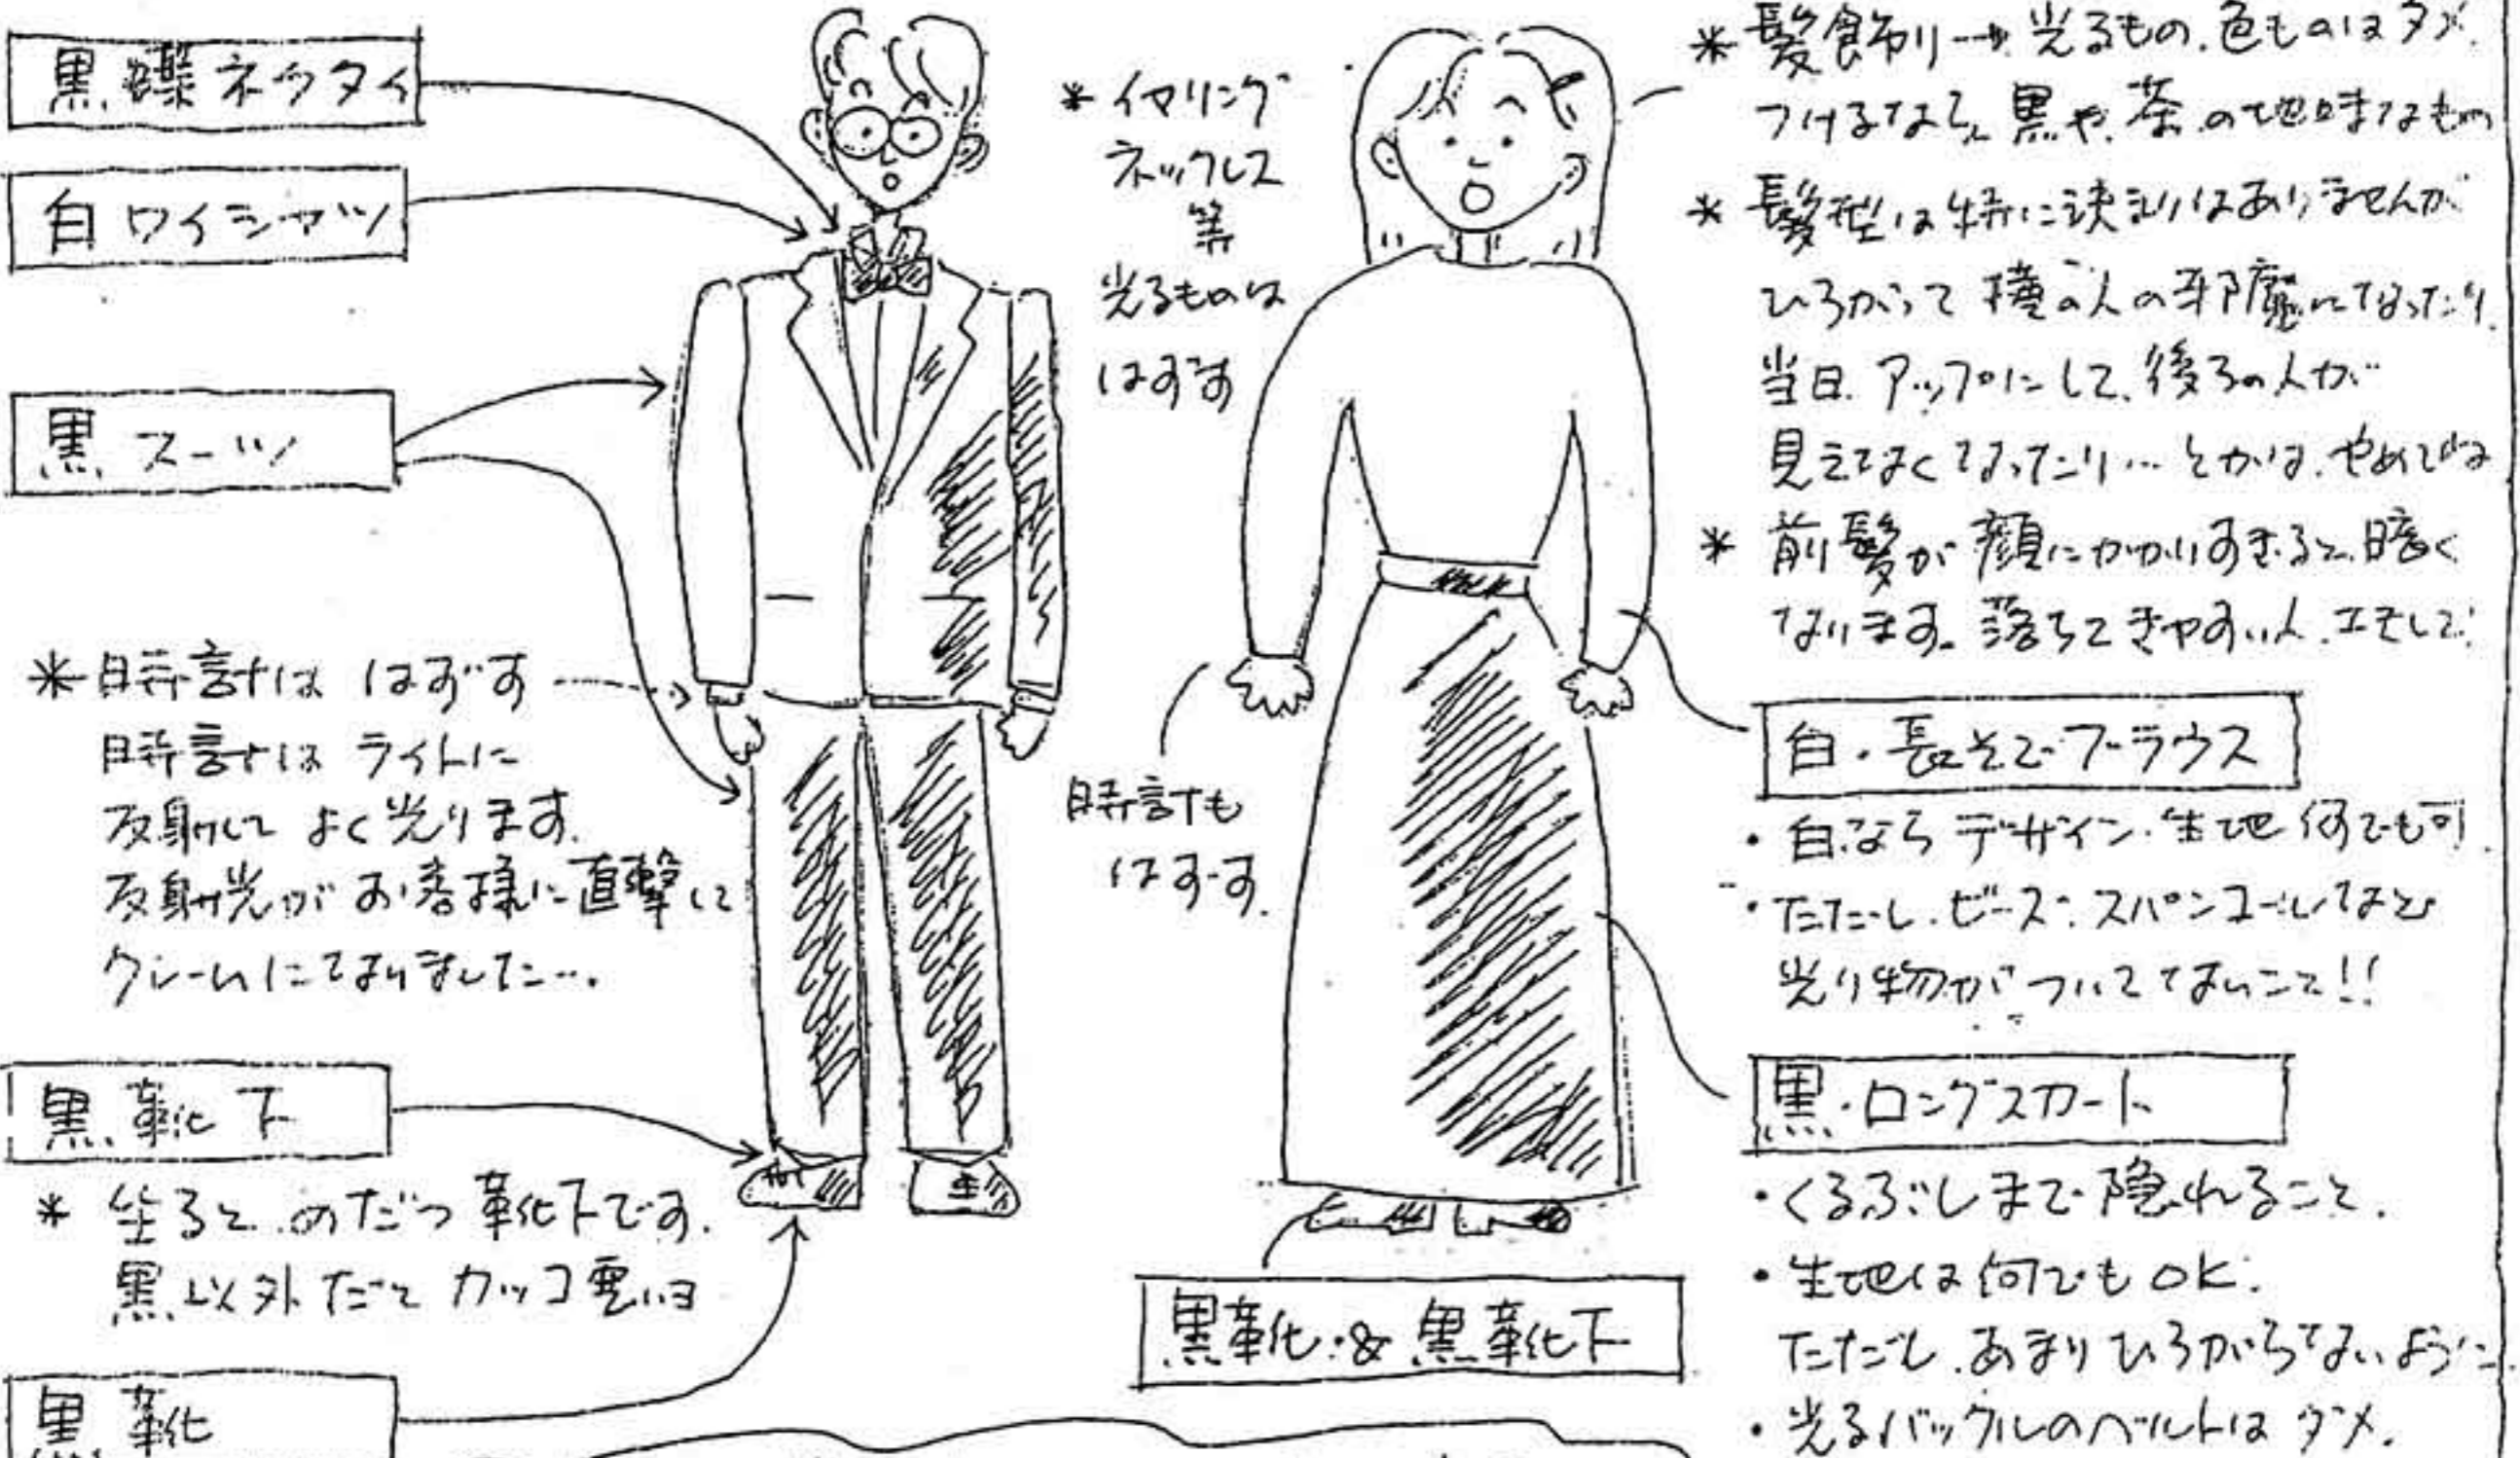 黒 蝶ネクタイ
白 ワイシャツ
黒 スーツ
*時計は はずす
時計は ライトに
反射して よく光ります.
反射光が お客様に直撃して
クレームになりました….
黒 靴下
* 坐ると、めだつ 靴下です.
黒以外だと カッコ悪いヨ
黒 靴
*イヤリング
ネックレス
等
光るものは
はずす
時計も
はずす.
黒靴 & 黒靴下
*髪飾り→ 光るもの、色ものはダメ.
つけるなら、黒や、茶の地味なもの
* 髪型は特に決まりはありませんが
ひろがって 横の人の邪魔になったり.
当日、アップにして、後ろの人が
見えなくなったり…とかは、やめてね
* 前髪が 顔にかかりすぎると、暗く
なります。落ちてきやすい人、工夫して.
白・長そでブラウス
・白なら デザイン・生地 何でも可.
・ただし、ビーズ、スパンコールなど
光り物が ついてないこと!!
黒・ロングスカート
・くるぶしまで 隠れること.
・生地は何でもOK.
ただし、あまり ひろがらないように.
・光るバックルのベルトはダメ.